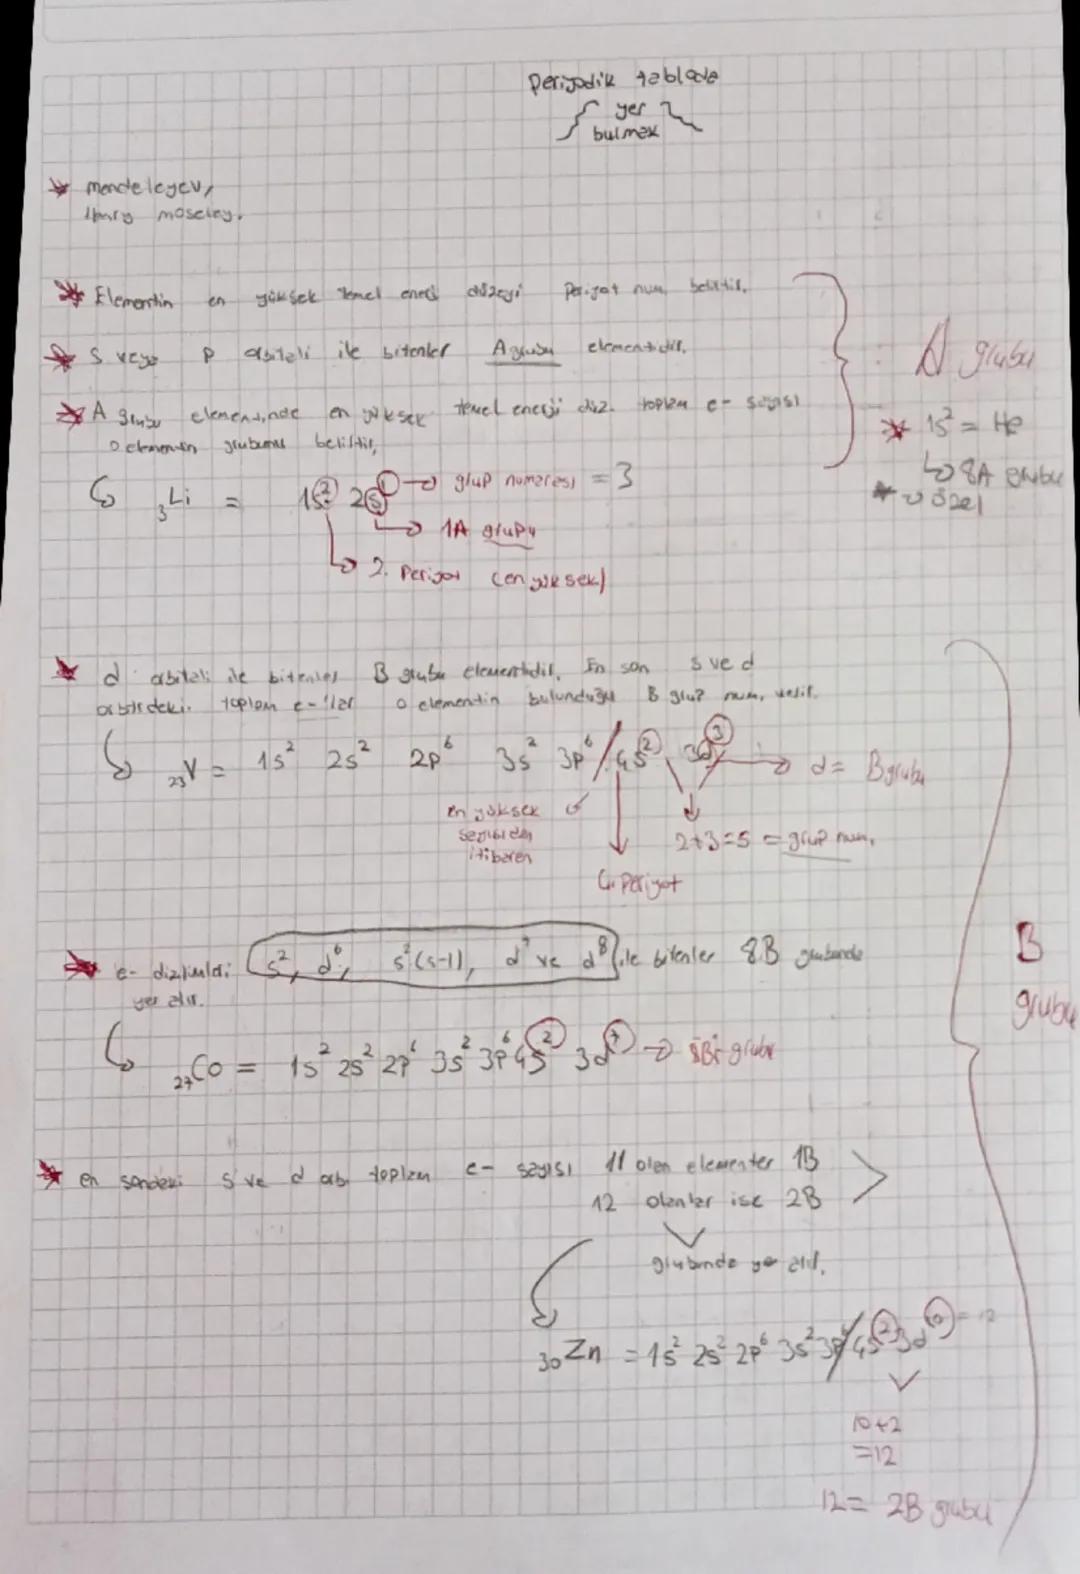 Periyodik tabloda
yer
bulmak
mendeleyev,
Henry moseley.
Elementin en yüksek temel enerji düzeyi Periyot num. belirtir.
S veya P orbitali ile bitenler A grubu elementidir.
A grubu elementinde en yüksek temel enerji düz. toplam e- sayısı
o elementin grubunu belirtir.
A grubu
1s² = He
↳ 8A grubu
→ özel
₃Li = 1s² 2s¹ → grup numarası = 3
→ 1A grubu
↳ 2. Periyot (en yüksek)
d orbitali ile bitenler B grubu elementidir. En son s ve d
orbitaldeki toplam e-'lar o elementin bulunduğu B grup num. verir.
₂₃V = 1s² 2s² 2p⁶ 3s² 3p⁶ / 4s² 3d³ → d = B grubu
en yüksek
sayısından
itibaren
2+3=5 = grup num.
4. Periyot
e- dizilimleri s², d⁶, s²(s-1), d⁷ ve d⁸ ile bitenler 8B grubunda
yer alır.
B
grubu
₂₇Co = 1s² 2s² 2p⁶ 3s² 3p⁶ 4s² 3d⁷ → 8B grubu
en sondaki s ve d orb. toplam e- sayısı 11 olan elementer 1B
12 olanlar ise 2B
grubunda yer alır.
₃₀Zn = 1s² 2s² 2p⁶ 3s² 3p⁶ / 4s² 3d¹⁰ = 12
10+2
=12
12= 2B grubu